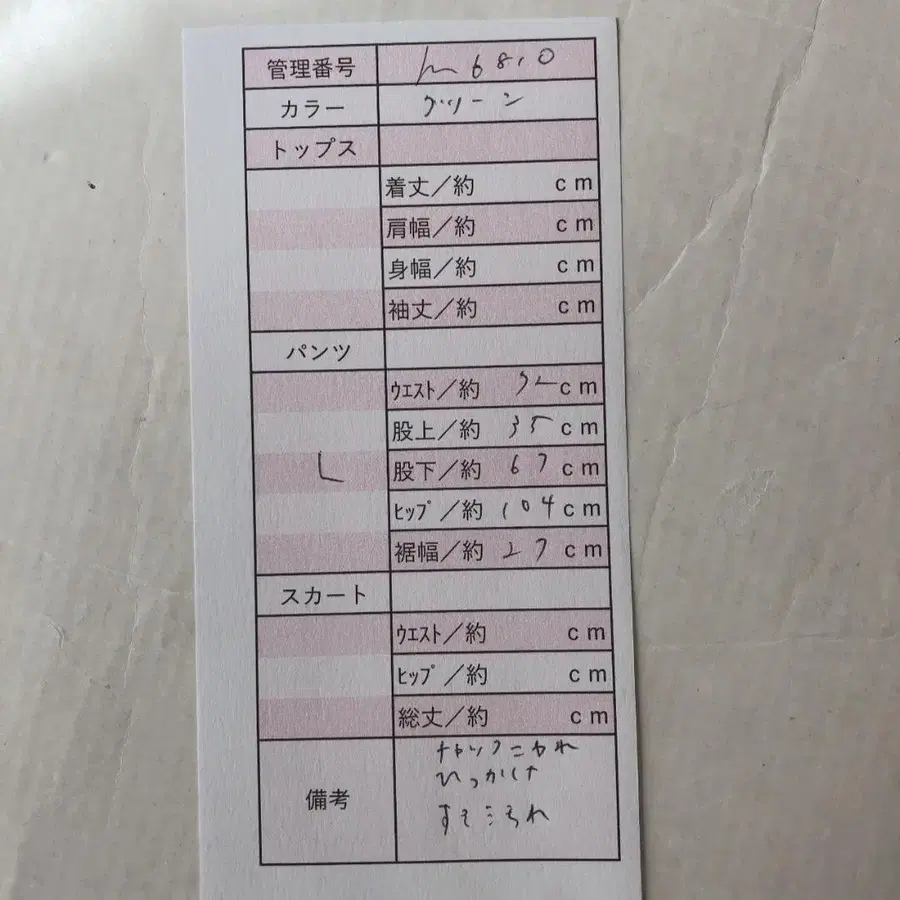 管理番号 m6810
カラー グリーン
トップス
着丈／約 cm
肩幅／約 cm
身幅／約 cm
袖丈／約 cm
パンツ
ｳｴｽﾄ／約 cm
股上／約 35 cm
L 股下／約 67 cm
ﾋｯﾌﾟ／約 104 cm
裾幅／約 27 cm
スカート
ｳｴｽﾄ／約 cm
ﾋｯﾌﾟ／約 cm
総丈／約 cm
備考 チャックこわれ
ひっかけ
すそ